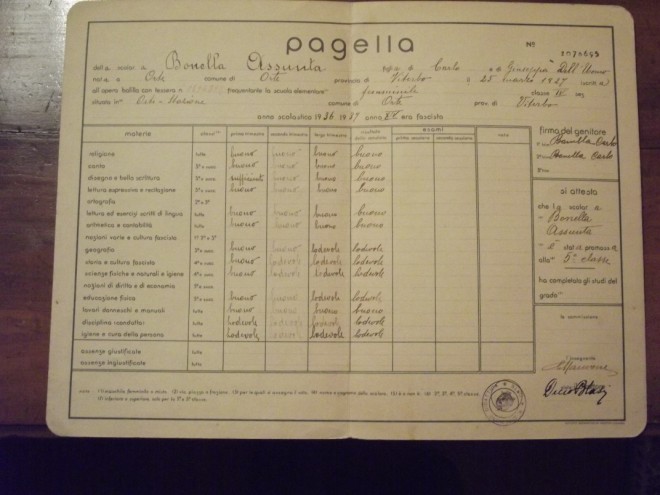 pagella
Nº
dell'a scolar a Bonella Assunta figlia di Carlo e di Giuseppa Dell'Uomo
nat a a Orte comune di Orte provincia di Viterbo il 25 marzo 1927
all'opera balilla con tessera frequentante la scuola elementare femminile classe IV
Orte - Stazione comune di Orte prov. di Viterbo
anno scolastico 1936 1937 anno XV era fascista
materie primo trimestre secondo trimestre terzo trimestre risultato dello scrutinio esami prima sessione seconda sessione note
religione tutte buono buono buono buono
canto buono buono buono buono
disegno e bella scrittura sufficiente buono buono buono
lettura espressiva e recitazione buono buono buono buono
ortografia
lettura ed esercizi scritti di lingua tutte buono buono buono buono
aritmetica e contabilità tutte buono buono buono buono
nozioni varie e cultura fascista
geografia buono buono lodevole lodevole
storia e cultura fascista buono lodevole lodevole lodevole
scienze fisiche e naturali e igiene buono lodevole lodevole lodevole
nozioni di diritto e di economia
educazione fisica tutte buono buono lodevole lodevole
lavori donneschi e manuali tutte buono buono buono buono
disciplina (condotta) tutte lodevole lodevole lodevole lodevole
igiene e cura della persona tutte lodevole lodevole lodevole lodevole
assenze giustificate tutte
assenze ingiustificate tutte
firma del genitore
Bonella Carlo
Bonella Carlo
si attesta
che l a scolar a
Bonella
Assunta
è stat a promoss a
alla 5ª classe
ha completato gli studi del
grado
la commissione
l'insegnante